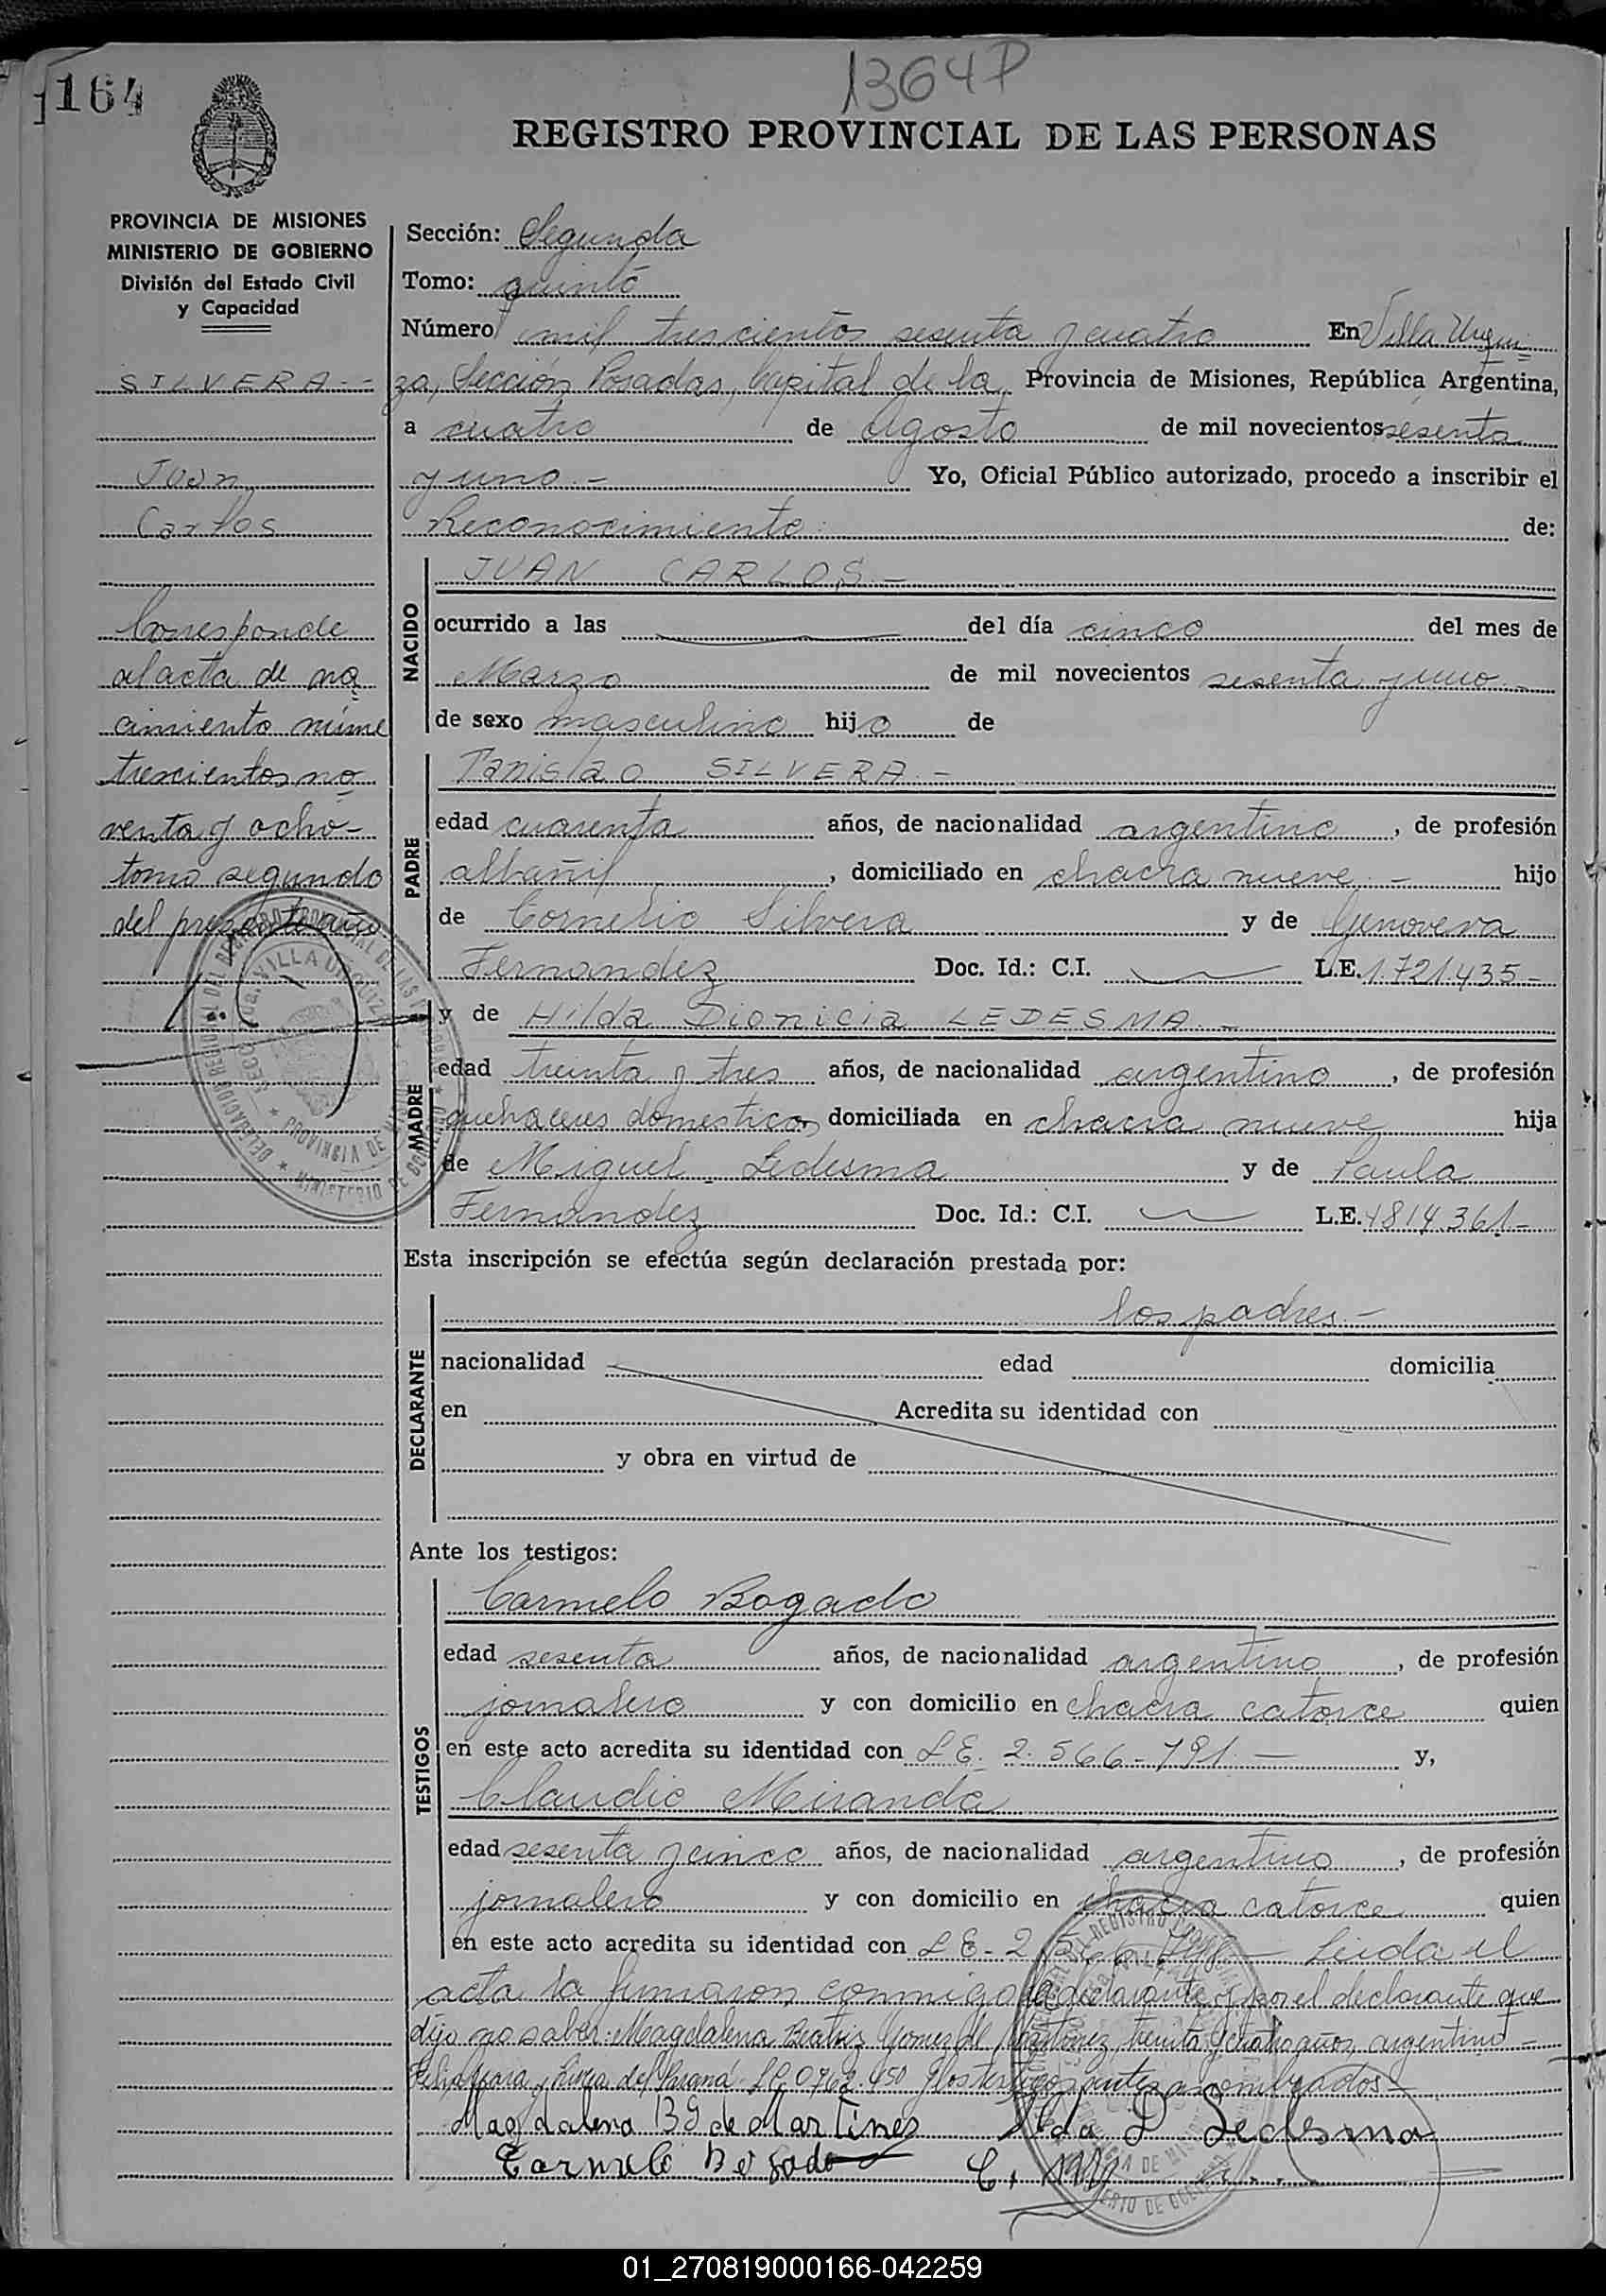 164
1364P
REGISTRO PROVINCIAL DE LAS PERSONAS
PROVINCIA DE MISIONES
MINISTERIO DE GOBIERNO
División del Estado Civil
y Capacidad
SILVERA.--
Juan
Carlos
Corresponde
al acta de na
cimiento núme
trescientos no
venta y ocho-
tomo segundo
del presente año
Sección: Segunda
Tomo: quinto
Número mil trescientos sesenta y cuatro En Villa Urqui
za, Sección Posadas, Capital de la Provincia de Misiones, República Argentina,
a cuatro de Agosto de mil novecientos sesenta
y uno.- Yo, Oficial Público autorizado, procedo a inscribir el
Reconocimiento de:
NACIDO
JUAN CARLOS.-
ocurrido a las del día cinco del mes de
Marzo de mil novecientos sesenta y uno.-
de sexo masculino hijo de
PADRE
Tanislao SILVERA.-
edad cuarenta años, de nacionalidad argentino, de profesión
albañil, domiciliado en chacra nueve.- hijo
de Cornelio Silvera y de Genoveva
Fernandez Doc. Id.: C.I. L.E. 1.721.435-
MADRE
y de Hilda Dionicia LEDESMA.-
edad treinta y tres años, de nacionalidad argentino, de profesión
quehaceres domesticos domiciliada en chacra nueve hija
de Miguel Ledesma y de Paula
Fernandez Doc. Id.: C.I. L.E. 4814.361-
Esta inscripción se efectúa según declaración prestada por:
DECLARANTE
los padres.-
nacionalidad edad domicilia
en Acredita su identidad con
y obra en virtud de
Ante los testigos:
TESTIGOS
Carmelo Bogado
edad sesenta años, de nacionalidad argentino, de profesión
jornalero y con domicilio en chacra catorce quien
en este acto acredita su identidad con L.E. 2.566-791.- y,
Claudio Miranda
edad sesenta y cinco años, de nacionalidad argentino, de profesión
jornalero y con domicilio en chacra catorce quien
en este acto acredita su identidad con L.E- 2 Leida el
acta la firmaron conmigo la declarante y por el declarante que
dijo no saber: Magdalena Beatriz Gomez de Martinez, treinta y cuatro años, argentino-
del Paraná L.C. 0762.450 y los testigos antes nombrados-
Magdalena B G de Martines Ilda D Ledesma
Carmelo Bogado C. M
01_270819000166-042259